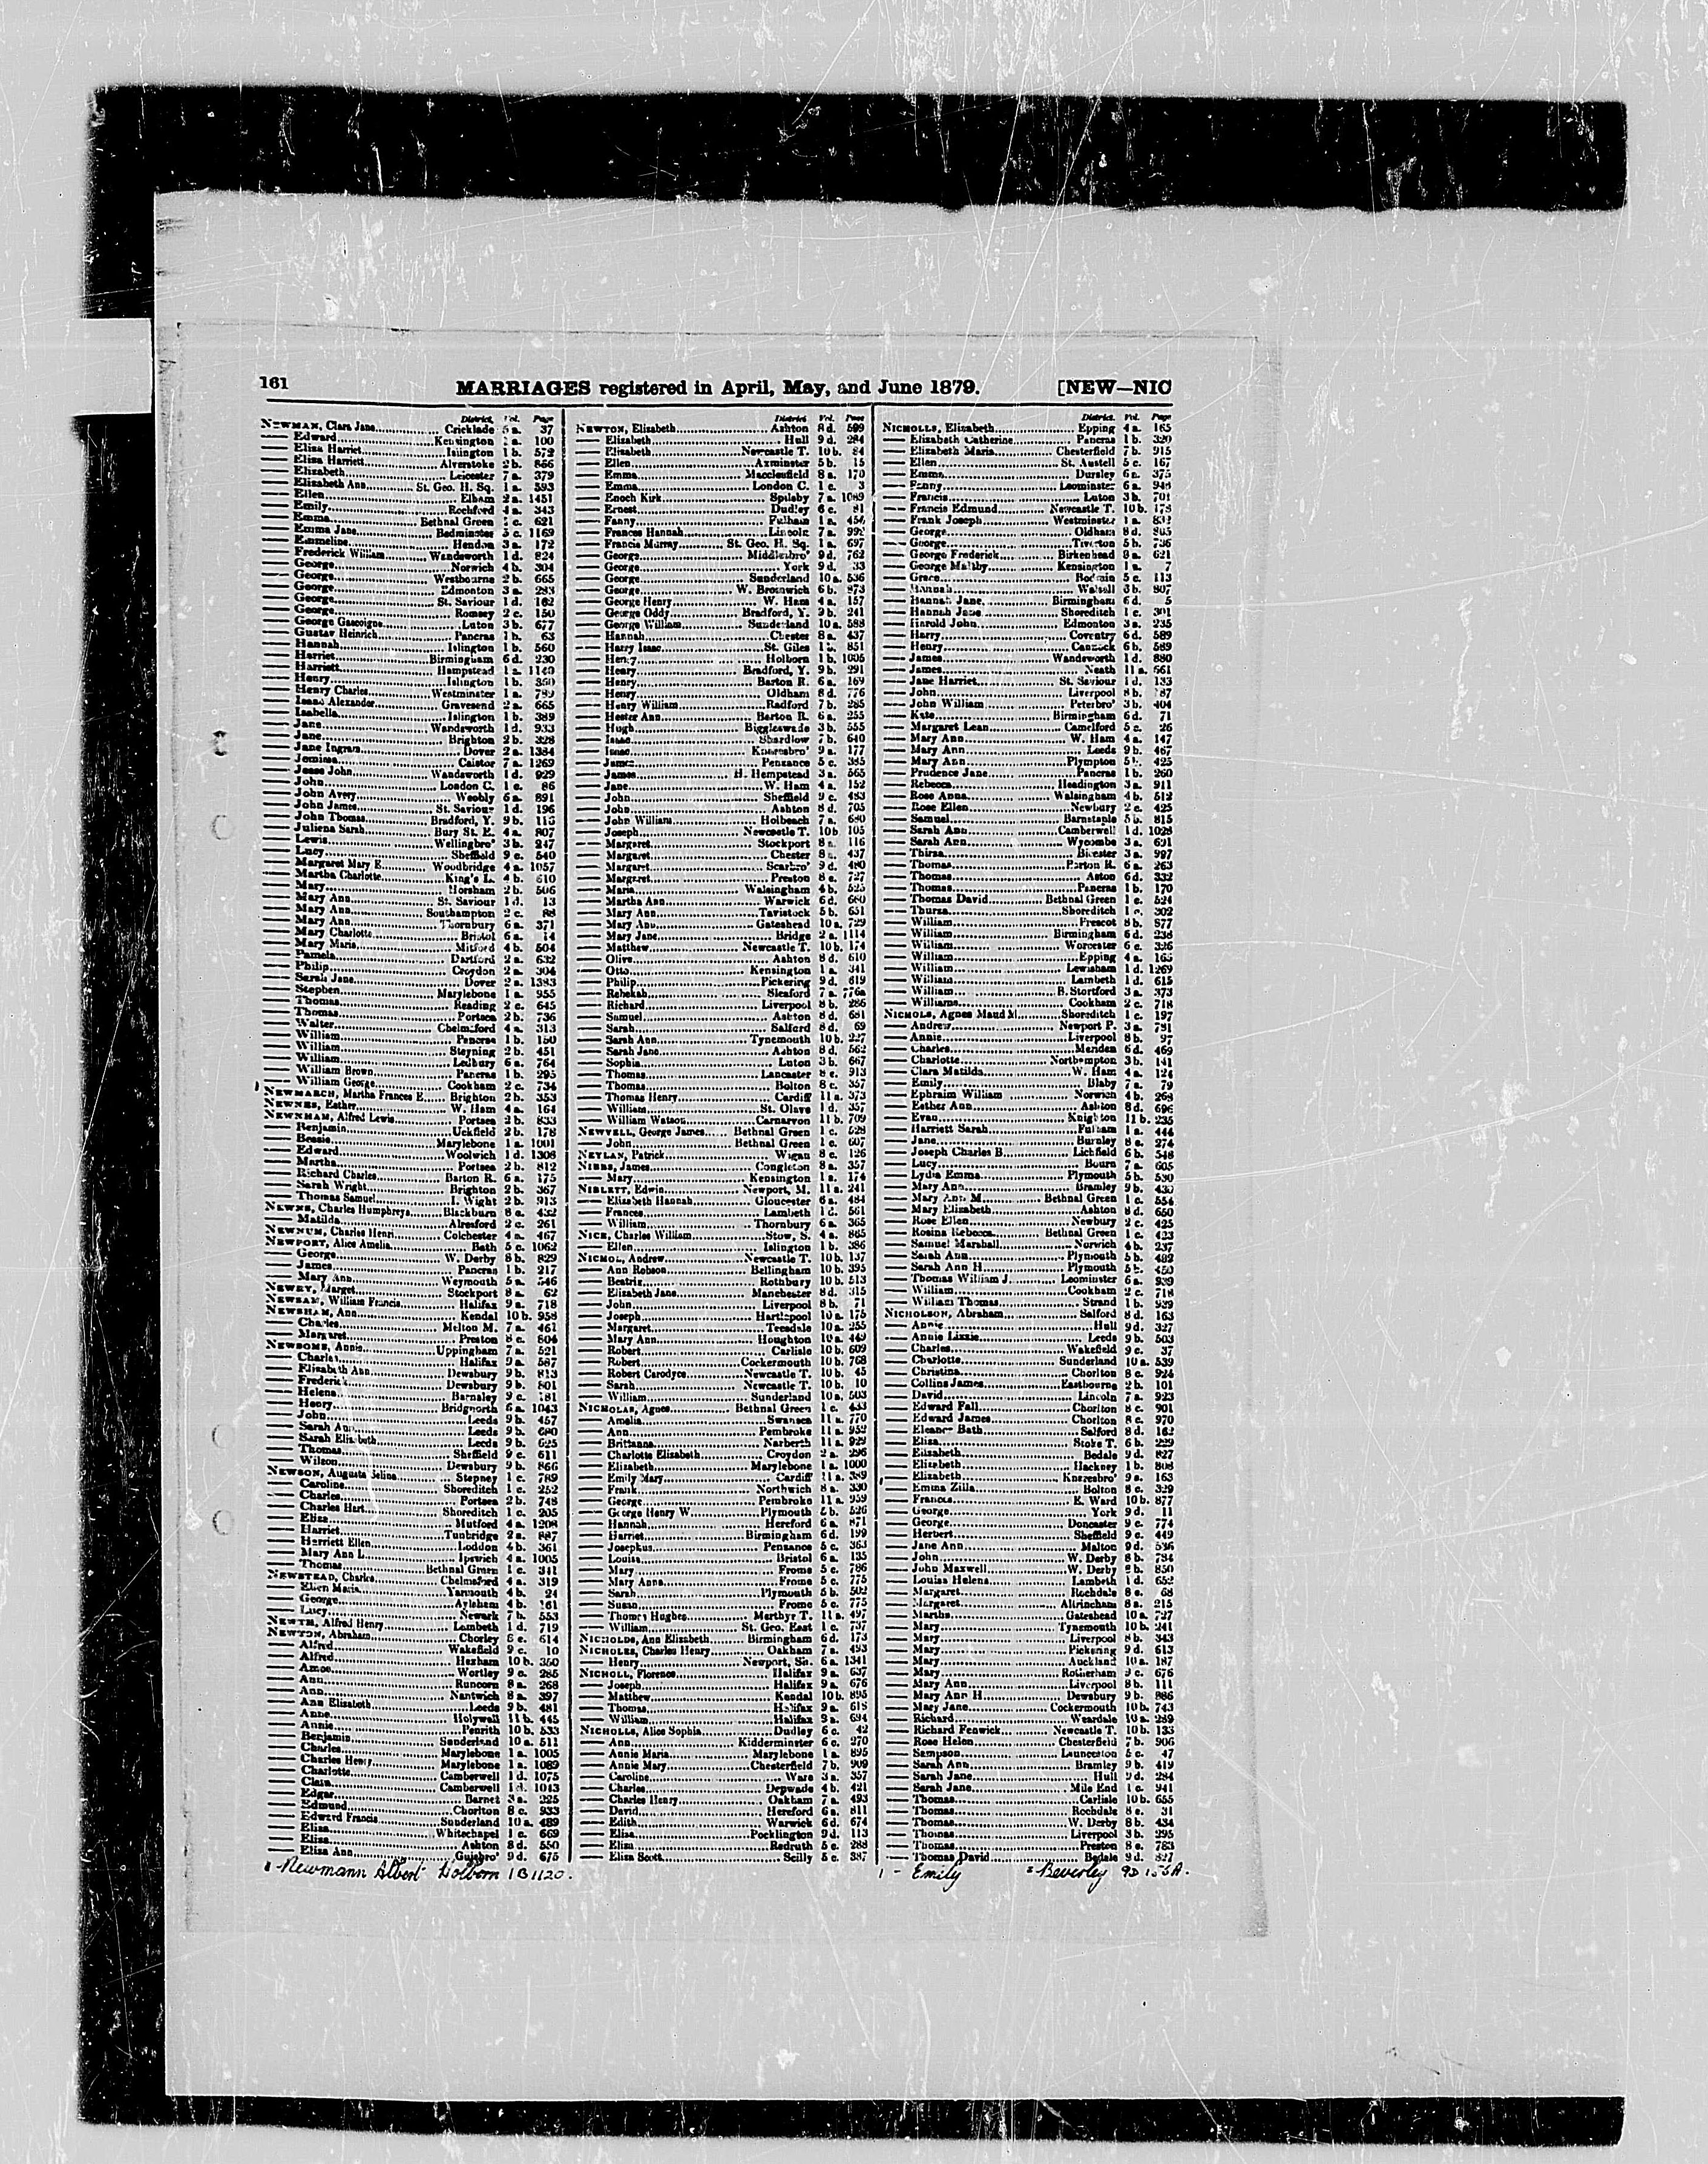 161 MARRIAGES registered in April, May, and June 1879. [NEW—NIC
District. Vol. Page
NEWMAN, Clara Jane Cricklade 5 a. 37
— Edward Kensington 1 a. 100
— Eliza Harriet Islington 1 b. 572
— Eliza Harriett Alverstoke 2 b. 866
— Elizabeth Leicester 7 a. 379
— Elizabeth Ann St. Geo. H. Sq. 1 a. 593
— Ellen Elham 2 a. 1451
— Emily Rochford 4 a. 343
— Emma Bethnal Green 1 c. 621
— Emma Jane Bedminster 5 c. 1169
— Emmeline Hendon 3 a. 172
— Frederick William Wandsworth 1 d. 824
— George Norwich 4 b. 304
— George Westbourne 2 b. 665
— George Edmonton 3 a. 283
— George St. Saviour 1 d. 162
— George Romsey 2 c. 150
— George Gascoigne Luton 3 b. 677
— Gustav Heinrich Pancras 1 b. 63
— Hannah Islington 1 b. 560
— Harriet Birmingham 6 d. 230
— Harriett Hampstead 1 a. 1140
— Henry Islington 1 b. 350
— Henry Charles Westminster 1 a. 789
— Isaac Alexander Gravesend 2 a. 665
— Isabella Islington 1 b. 389
— Jane Wandsworth 1 d. 933
— Jane Brighton 2 b. 328
— Jane Ingram Dover 2 a. 1384
— Jemima Caistor 7 a. 1269
— Jesse John Wandsworth 1 d. 929
— John London C. 1 c. 86
— John Avery Weobly 6 a. 891
— John James St. Saviour 1 d. 196
— John Thomas Bradford, Y. 9 b. 115
— Juliena Sarah Bury St. E. 4 a. 807
— Lewis Wellingbro' 3 b. 247
— Lucy Sheffield 9 c. 540
— Margaret Mary E. Woodbridge 4 a. 1057
— Martha Charlotte King's L. 4 b. 610
— Mary Horsham 2 b. 506
— Mary Ann St. Saviour 1 d. 13
— Mary Ann Southampton 2 c. 88
— Mary Ann Thornbury 6 a. 371
— Mary Charlotte Bristol 6 a. 14
— Mary Maria Mitford 4 b. 504
— Pamela Dartford 2 a. 632
— Philip Croydon 2 a. 304
— Sarah Jane Dover 2 a. 1383
— Stephen Marylebone 1 a. 955
— Thomas Reading 2 c. 645
— Thomas Portsea 2 b. 736
— Walter Chelmsford 4 a. 313
— William Pancras 1 b. 150
— William Steyning 2 b. 451
— William Ledbury 6 a. 764
— William Brown Pancras 1 b. 295
— William George Cookham 2 c. 734
NEWMARCH, Martha Frances E. Brighton 2 b. 353
NEWNES, Esther W. Ham 4 a. 164
NEWNHAM, Alfred Lewis Portsea 2 b. 833
— Benjamin Uckfield 2 b. 178
— Bessie Marylebone 1 a. 1001
— Edward Woolwich 1 d. 1308
— Martha Portsea 2 b. 812
— Richard Charles Barton R. 6 a. 175
— Sarah Wright Brighton 2 b. 367
— Thomas Samuel I. Wight 2 b. 913
NEWNS, Charles Humphreys Blackburn 8 e. 432
— Matilda Alresford 2 c. 261
NEWNUM, Charles Henri Colchester 4 a. 467
NEWPORT, Alice Amelia Bath 5 c. 1062
— George W. Derby 8 b. 829
— James Pancras 1 b. 217
— Mary Ann Weymouth 5 a. 546
NEWRY, Marget Stockport 8 a. 62
NEWSAM, William Francis Halifax 9 a. 718
NEWSHAM, Ann Kendal 10 b. 958
— Charles Melton M. 7 a. 461
— Margaret Preston 8 e. 604
NEWSOME, Annie Uppingham 7 a. 521
— Charles Halifax 9 a. 587
— Elizabeth Ann Dewsbury 9 b. 813
— Frederick Dewsbury 9 b. 801
— Helena Barnsley 9 c. 181
— Henry Bridgnorth 6 a. 1043
— John Leeds 9 b. 457
— Sarah Ann Leeds 9 b. 680
— Sarah Elizabeth Leeds 9 b. 625
— Thomas Sheffield 9 c. 611
— Wilson Dewsbury 9 b. 866
NEWSON, Augusta Selina Stepney 1 c. 789
— Caroline Shoreditch 1 c. 252
— Charles Portsea 2 b. 748
— Charles Hart Shoreditch 1 c. 205
— Eliza Mutford 4 a. 1208
— Harriet Tunbridge 2 a. 887
— Harriett Ellen Loddon 4 b. 361
— Mary Ann L. Ipswich 4 a. 1005
— Thomas Bethnal Green 1 c. 311
NEWSTEAD, Charles Chelmsford 4 a. 319
— Ellen Maria Yarmouth 4 b. 24
— George Aylsham 4 b. 161
— Lucy Newark 7 b. 553
NEWTH, Alfred Henry Lambeth 1 d. 719
NEWTON, Abraham Chorley 8 e. 614
— Alfred Wakefield 9 c. 10
— Alfred Hexham 10 b. 350
— Amos Wortley 9 c. 285
— Ann Runcorn 8 a. 268
— Ann Nantwich 8 a. 397
— Ann Elizabeth Leeds 9 b. 481
— Anne Holywell 11 b. 445
— Annie Penrith 10 b. 533
— Benjamin Sunderland 10 a. 511
— Charles Marylebone 1 a. 1005
— Charles Henry Marylebone 1 a. 1089
— Charlotte Camberwell 1 d. 1075
— Clara Camberwell 1 d. 1043
— Edgar Barnet 3 a. 225
— Edmund Chorlton 8 c. 933
— Edward Francis Sunderland 10 a. 489
— Eliza Whitechapel 1 c. 669
— Eliza Ashton 8 d. 550
— Eliza Ann Guisbro' 9 d. 675
Newmann Albert Holborn 1B 1120.
District Vol. Page
NEWTON, Elizabeth Ashton 8 d. 599
— Elizabeth Hull 9 d. 284
— Elizabeth Newcastle T. 10 b. 84
— Ellen Axminster 5 b. 15
— Emma Macclesfield 8 a. 170
— Emma London C. 1 c. 3
— Enoch Kirk Spilsby 7 a. 1089
— Ernest Dudley 6 c. 81
— Fanny Fulham 1 a. 456
— Frances Hannah Lincoln 7 a. 992
— Francis Murray St. Geo. H. Sq. 1 a. 697
— George Middlesbro' 9 d. 762
— George York 9 d. 33
— George Sunderland 10 a. 536
— George W. Bromwich 6 b. 873
— George Henry W. Ham 4 a. 157
— George Oddy Bradford, Y. 9 b. 241
— George William Sunderland 10 a. 588
— Hannah Chester 8 a. 437
— Harry Isaac St. Giles 1 b. 851
— Henry Holborn 1 b. 1005
— Henry Bradford, Y. 9 b. 291
— Henry Barton R. 6 a. 169
— Henry Oldham 8 d. 776
— Henry William Radford 7 b. 285
— Hester Ann Barton R. 6 a. 255
— Hugh Biggleswade 3 b. 555
— Isaac Shardlow 7 b. 640
— Isaac Knaresbro' 9 a. 177
— James Penzance 5 c. 385
— James H. Hempstead 3 a. 565
— Jane W. Ham 4 a. 152
— John Sheffield 9 c. 483
— John Ashton 8 d. 705
— John William Holbeach 7 a. 680
— Joseph Newcastle T. 10 b 105
— Margaret Stockport 8 a. 116
— Margaret Chester 8 a. 437
— Margaret Scarbro' 9 d. 480
— Margaret Preston 8 e. 727
— Maria Walsingham 4 b. 525
— Martha Ann Warwick 6 d. 660
— Mary Ann Tavistock 5 b. 651
— Mary Ann Gateshead 10 a. 729
— Mary Jane Bridge 2 a. 1114
— Matthew Newcastle T. 10 b. 174
— Olive Ashton 8 d. 610
— Otto Kensington 1 a. 341
— Philip Pickering 9 d. 619
— Rebekah Sleaford 7 a. 776a
— Richard Liverpool 8 b. 286
— Samuel Ashton 8 d. 681
— Sarah Salford 8 d. 69
— Sarah Ann Tynemouth 10 b. 227
— Sarah Jane Ashton 8 d. 562
— Sophia Luton 3 b. 667
— Thomas Lancaster 8 e. 913
— Thomas Bolton 8 c. 357
— Thomas Henry Cardiff 11 a. 373
— William St. Olave 1 d. 357
— William Watson Carnarvon 11 b. 709
NEWVELL, George James Bethnal Green 1 c. 528
— John Bethnal Green 1 c. 607
NEYLAN, Patrick Wigan 8 c. 126
NIBBS, James Congleton 8 a. 357
— Mary Kensington 1 a. 174
NIBLETT, Edwin Newport, M. 11 a. 241
— Elizabeth Hannah Gloucester 6 a. 484
— Frances Lambeth 1 d. 561
— William Thornbury 6 a. 365
NICE, Charles William Stow, S. 4 a. 885
— Ellen Islington 1 b. 386
NICHOL, Andrew Newcastle T. 10 b. 137
— Ann Robson Bellingham 10 b. 395
— Beatrix Rothbury 10 b. 513
— Elizabeth Jane Manchester 8 d. 315
— John Liverpool 8 b. 71
— Joseph Hartlepool 10 a. 175
— Margaret Teesdale 10 a. 255
— Mary Ann Houghton 10 a. 449
— Robert Carlisle 10 b. 609
— Robert Cockermouth 10 b. 768
— Robert Carodyce Newcastle T. 10 b. 45
— Sarah Newcastle T. 10 b. 10
— William Sunderland 10 a. 503
NICHOLAS, Agnes Bethnal Green 1 c. 433
— Amelia Swansea 11 a. 770
— Ann Pembroke 11 a. 952
— Brittanna Narberth 11 a. 929
— Charlotte Elizabeth Croydon 2 a. 296
— Elizabeth Marylebone 1 a. 1000
— Emily Mary Cardiff 11 a. 389
— Frank Northwich 8 a. 330
— George Pembroke 11 a. 959
— George Henry W. Plymouth 5 b. 526
— Hannah Hereford 6 a. 871
— Harriet Birmingham 6 d. 199
— Josephus Penzance 5 c. 363
— Louisa Bristol 6 a. 135
— Mary Frome 5 c. 786
— Mary Anna Frome 5 c. 775
— Sarah Plymouth 5 b. 502
— Susan Frome 5 c. 775
— Thomas Hughes Merthyr T. 11 a. 497
— William St. Geo. East 1 c. 757
NICHOLDS, Ann Elizabeth Birmingham 6 d. 173
NICHOLES, Charles Henry Oakham 7 a. 493
— Henry Newport, Sa. 6 a. 1341
NICHOLL, Florence Halifax 9 a. 637
— Joseph Halifax 9 a. 676
— Matthew Kendal 10 b. 895
— Thomas Halifax 9 a. 618
— William Halifax 9 a. 694
NICHOLLS, Alice Sophia Dudley 6 c. 42
— Ann Kidderminster 6 c. 270
— Annie Maria Marylebone 1 a. 895
— Annie Mary Chesterfield 7 b. 909
— Caroline Ware 3 a. 357
— Charles Depwade 4 b. 421
— Charles Henry Oakham 7 a. 493
— David Hereford 6 a. 811
— Edith Warwick 6 d. 674
— Eliza Pocklington 9 d. 113
— Eliza Redruth 5 c. 288
— Eliza Scott Scilly 5 c. 387
District. Vol. Page
NICHOLLS, Elizabeth Epping 4 a. 165
— Elizabeth Catherine Pancras 1 b. 320
— Elizabeth Maria Chesterfield 7 b. 915
— Ellen St. Austell 5 c. 167
— Emma Dursley 6 a. 375
— Fanny Leominster 6 a. 948
— Francis Luton 3 b. 701
— Francis Edmund Newcastle T. 10 b. 178
— Frank Joseph Westminster 1 a. 832
— George Oldham 8 d. 805
— George Tiverton 5 b. 736
— George Frederick Birkenhead 8 a. 621
— George Maltby Kensington 1 a. 7
— Grace Bodmin 5 c. 113
— Hannah Walsall 6 b. 807
— Hannah Jane Birmingham 6 d. 5
— Hannah Jane Shoreditch 1 c. 301
— Harold John Edmonton 3 a. 235
— Harry Coventry 6 d. 589
— Henry Cannock 6 b. 589
— James Wandsworth 1 d. 880
— James Neath 11 a. 661
— Jane Harriet St. Saviour 1 d. 133
— John Liverpool 8 b. 187
— John William Peterbro' 3 b. 404
— Kate Birmingham 6 d. 71
— Margaret Lean Camelford 5 c. 26
— Mary Ann W. Ham 4 a. 147
— Mary Ann Leeds 9 b. 467
— Mary Ann Plympton 5 b. 425
— Prudence Jane Pancras 1 b. 260
— Rebecca Headington 3 a. 911
— Rose Anna Walsingham 4 b. 512
— Rose Ellen Newbury 2 c. 425
— Samuel Barnstaple 5 b. 815
— Sarah Ann Camberwell 1 d. 1028
— Sarah Ann Wycombe 3 a. 691
— Thirza Bicester 3 a. 997
— Thomas Barton R. 6 a. 263
— Thomas Aston 6 d. 332
— Thomas Pancras 1 b. 170
— Thomas David Bethnal Green 1 c. 524
— Thurza Shoreditch 1 c. 302
— William Prescot 8 b. 877
— William Birmingham 6 d. 238
— William Worcester 6 c. 326
— William Epping 4 a. 165
— William Lewisham 1 d. 1269
— William Lambeth 1 d. 615
— William B. Stortford 3 a. 373
— Williams Cookham 2 c. 718
NICHOLS, Agnes Maud M. Shoreditch 1 c. 197
— Andrew Newport P. 3 a. 791
— Annie Liverpool 8 b. 97
— Charles Meriden 6 d. 469
— Charlotte Northampton 3 b. 141
— Clara Matilda W. Ham 4 a. 124
— Emily Blaby 7 a. 79
— Ephraim William Norwich 4 b. 268
— Esther Ann Ashton 8 d. 696
— Evan Knighton 11 b. 235
— Harriett Sarah Fulham 1 a. 444
— Jane Burnley 8 e. 274
— Joseph Charles B. Lichfield 6 b. 548
— Lucy Bourn 7 a. 605
— Lydia Emma Plymouth 5 b. 530
— Mary Ann Bramley 9 b. 430
— Mary Ann M. Bethnal Green 1 c. 554
— Mary Elizabeth Ashton 8 d. 650
— Rose Ellen Newbury 2 c. 425
— Rosina Rebecca Bethnal Green 1 c. 423
— Samuel Marshall Norwich 4 b. 237
— Sarah Ann Plymouth 5 b. 492
— Sarah Ann H. Plymouth 5 b. 450
— Thomas William J. Leominster 6 a. 939
— William Cookham 2 c. 718
— William Thomas Strand 1 b. 939
NICHOLSON, Abraham Salford 8 d. 163
— Annie Hull 9 d. 327
— Annie Lizzie Leeds 9 b. 503
— Charles Wakefield 9 c. 37
— Charlotte Sunderland 10 a. 539
— Christina Chorlton 8 c. 924
— Collins James Eastbourne 2 b. 101
— David Lincoln 7 a. 923
— Edward Fall Chorlton 8 c. 901
— Edward James Chorlton 8 c. 970
— Eleanor Bath Salford 8 d. 162
— Eliza Stoke T. 6 b. 229
— Elizabeth Bedale 9 d. 827
— Elizabeth Hackney 1 b. 808
— Elizabeth Knaresbro' 9 a. 163
— Emma Zilla Bolton 8 c. 329
— Frances E. Ward 10 b. 877
— George York 9 d. 11
— George Doncaster 9 c. 774
— Herbert Sheffield 9 c. 449
— Jane Ann Malton 9 d. 536
— John W. Derby 8 b. 734
— John Maxwell W. Derby 8 b. 850
— Louisa Helena Lambeth 1 d. 652
— Margaret Rochdale 8 e. 68
— Margaret Altrincham 8 a. 215
— Martha Gateshead 10 a. 727
— Mary Tynemouth 10 b. 241
— Mary Liverpool 8 b. 343
— Mary Pickering 9 d. 613
— Mary Auckland 10 a. 187
— Mary Rotherham 9 c. 676
— Mary Ann Liverpool 8 b. 111
— Mary Ann H. Dewsbury 9 b. 886
— Mary Jane Cockermouth 10 b. 743
— Richard Weardale 10 a. 289
— Richard Fenwick Newcastle T. 10 b. 133
— Rose Helen Chesterfield 7 b. 906
— Sampson Launceston 5 c. 47
— Sarah Ann Bramley 9 b. 419
— Sarah Jane Hull 9 d. 284
— Sarah Jane Mile End 1 c. 941
— Thomas Carlisle 10 b. 655
— Thomas Rochdale 8 e. 31
— Thomas W. Derby 8 b. 434
— Thomas Liverpool 8 b. 295
— Thomas Preston 8 e. 763
— Thomas David Bedale 9 d. 827
1 - Emily Beverley 9D 155A.